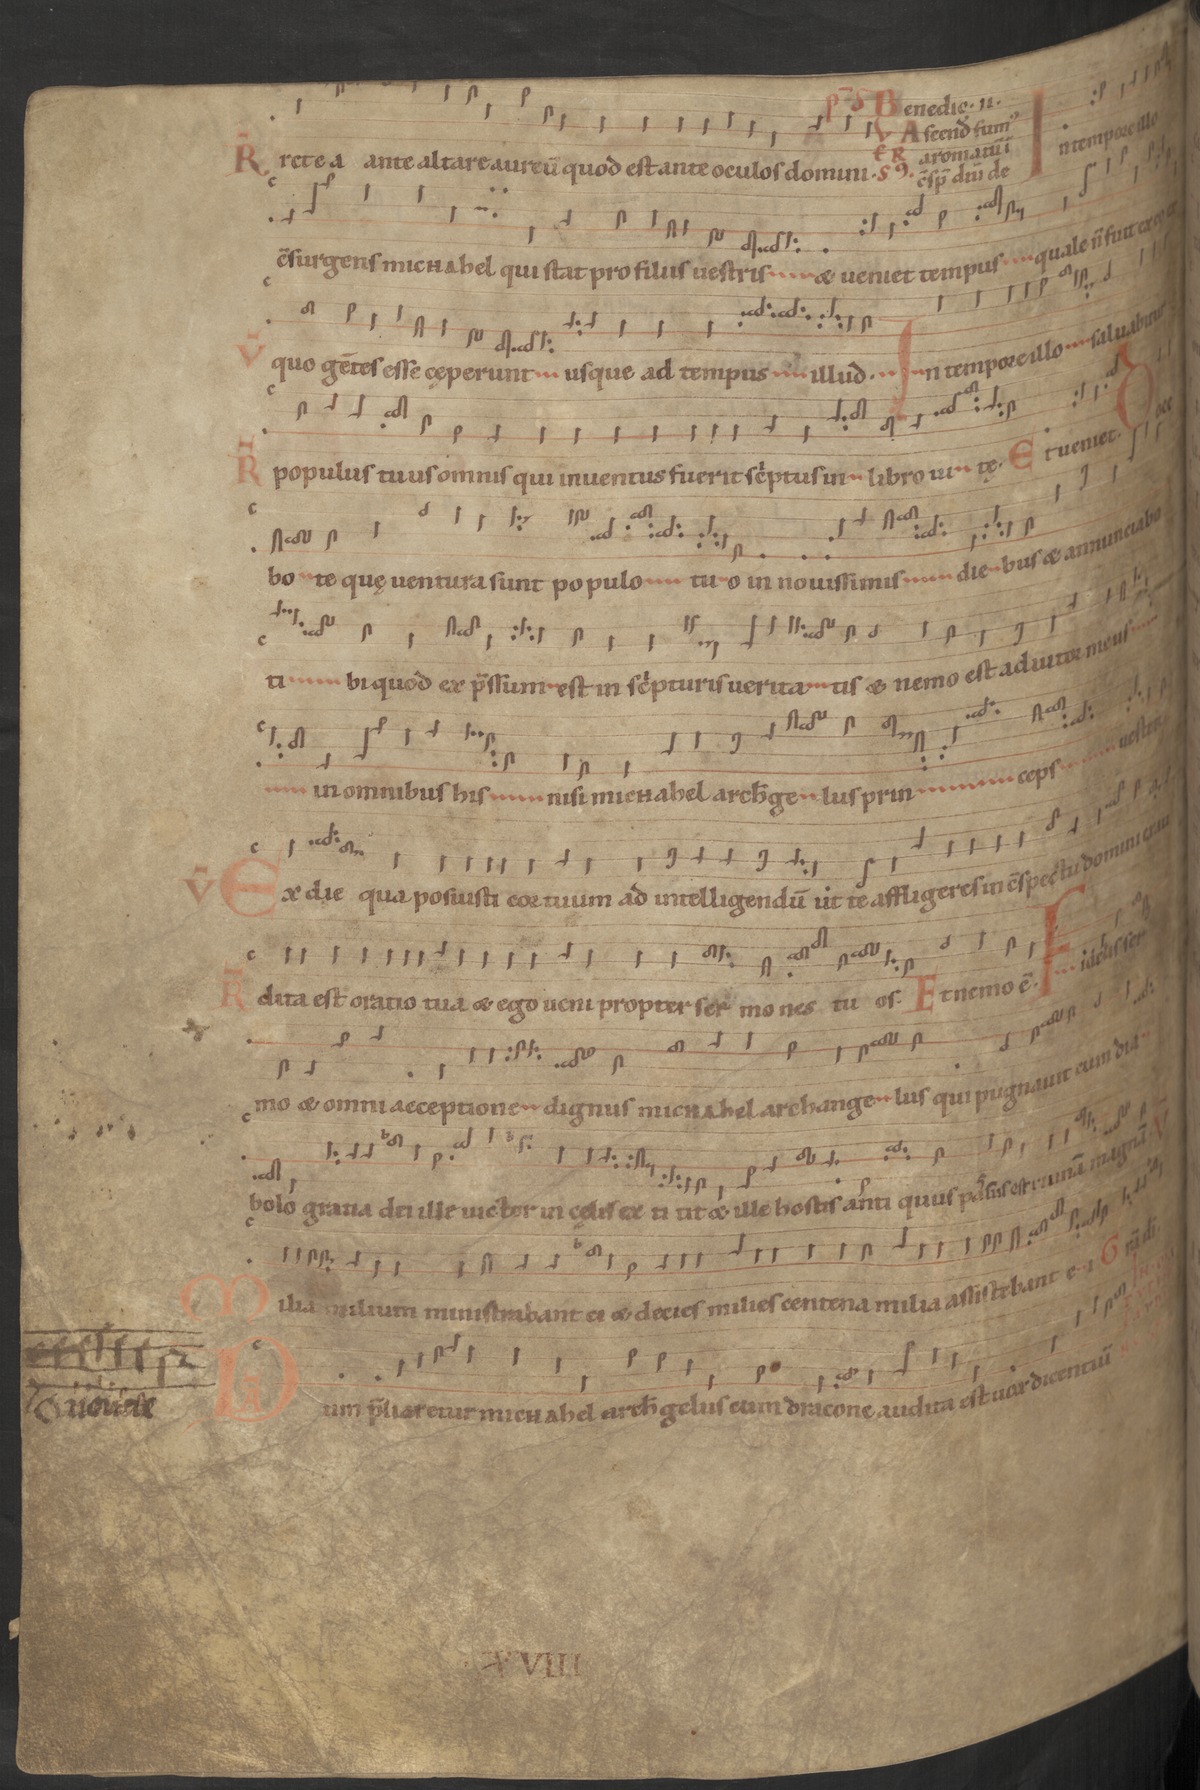 Benedic. 11.
V Ascend fum⁹
R̄ rete a ante altare aureū quod est ante oculos domini. S aromatū ī In tempore illo
c̄sp̄ dn̄i de
c̄surgens michahel qui stat pro filiis vestris & veniet tempus quale n̄ fuit ex eo
V̄ quo gētes esse ceperunt usque ad tempus illud. In tempore illo salvabitur
R̄ populus tuus omnis qui inventus fuerit sc̄ptus in libro vi tę. Et veniet. Doce
bo te quę ventura sunt populo tu o in novissimis die bus & annunciabo
ti bi quod ex p̄ssum est in sc̄pturis verita tis & nemo est adiutor meus
in omnibus his nisi michahel arch̄ge lus prin ceps vester
V̄ Ex die qua posuisti cor tuum ad intelligendū ut te affligeres in c̄spectu domini
R̄ dita est oratio tua & ego veni propter ser mo nes tu os. Et nemo ē. Fidelis ser
mo & omni acceptione dignus michahel archange lus qui pugnavit cum dia
bolo gratia dei ille victor in cęlis ex ti tit & ille hostis anti quus passus est ruinā magnā. V̄
Milia milium ministrabant ei & decies milies centena milia assistebant e i Gr̄a di
Dum p̄liaretur michahel arch̄gelus cum dracone audita est vox dicentiū
VIIII